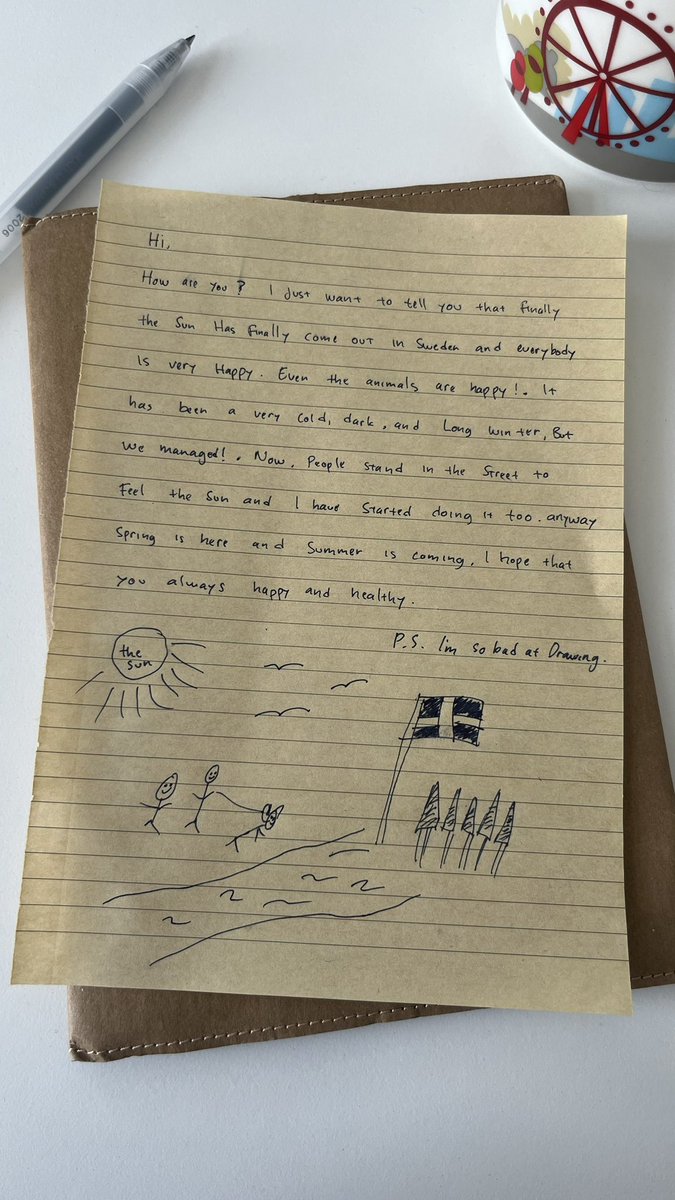 2006
Hi,
How are you? I just want to tell you that finally
the Sun Has finally come out in Sweden and everybody
is very Happy. Even the animals are happy!. It
has been a very cold, dark, and Long winter, But
We managed!. Now, People stand in the Street to
Feel the Sun and I have started doing it too. anyway
Spring is here and Summer is coming, I hope that
you always happy and healthy.
P.S. I'm so bad at Drawing.
the
sun